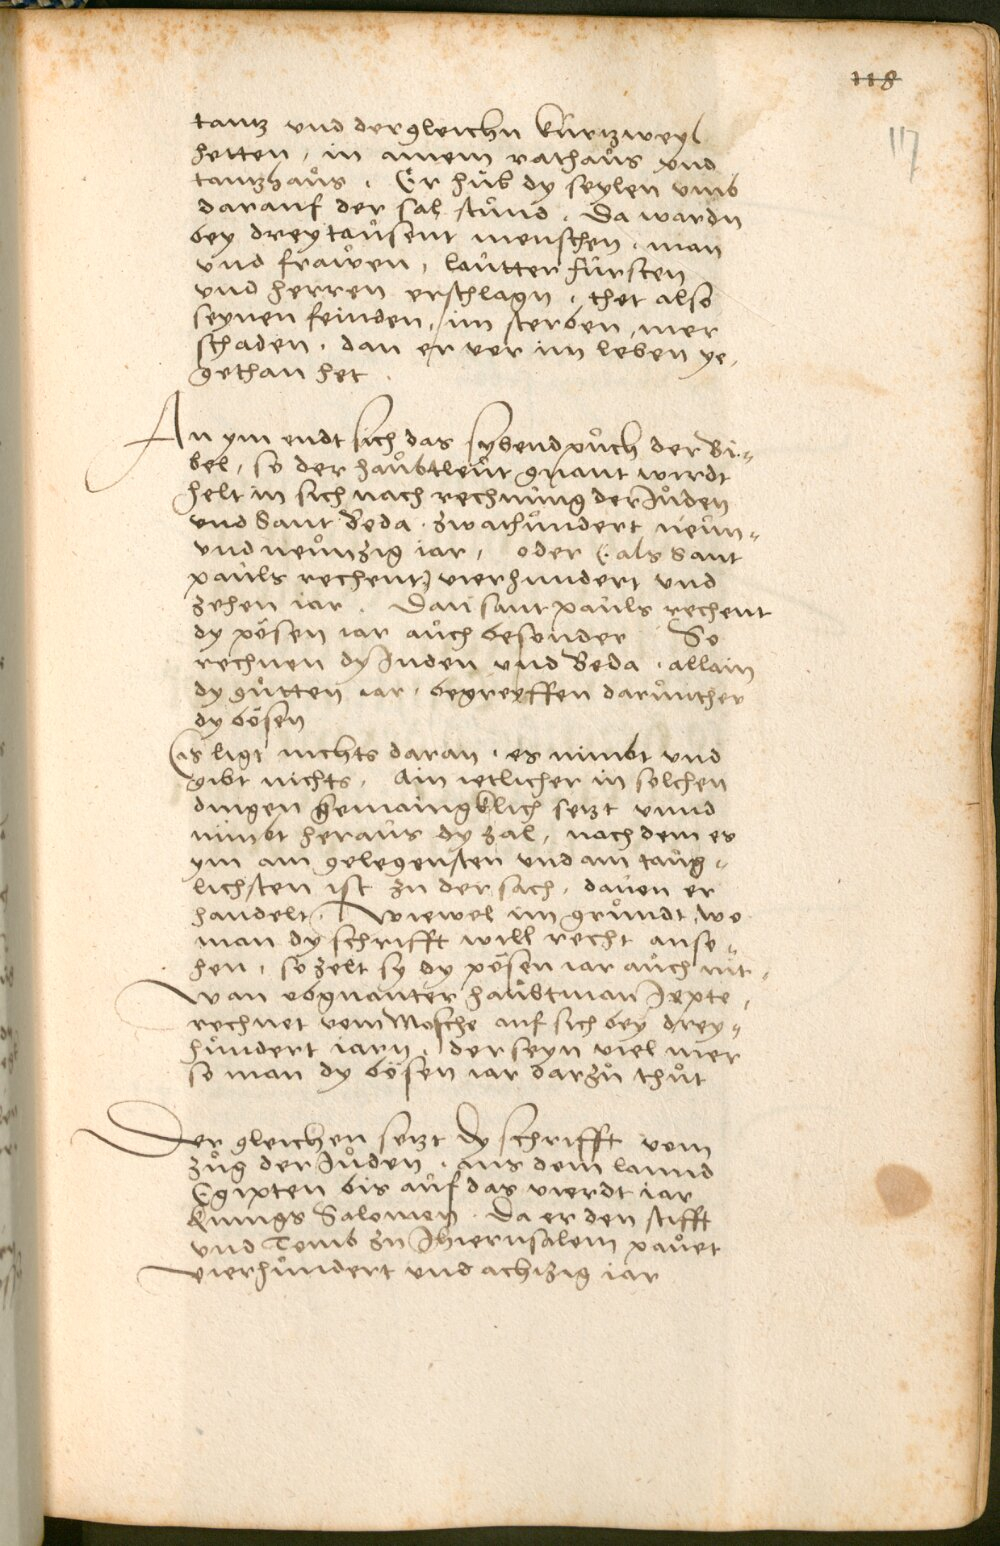 118
117
tantz und dergleichn kurtzweyl
hetten, in ainem rathaůs und
tantzhaůs. Er hůb dy seylen umb
darauf der sal stůnd. Da wardn
bey dreytaůsent menschen, man
und frawen, laůtter fůrsten
und herren erschlagn, thet also
seynen feinden, im sterben, mer
schaden, dan er vor im leben ye,
gethan het.
An ym endt sich das sybend půch der Bi„
bel, so der haůbtleůt gnant wirdt
helt in sich nach rechnůng der Jůden
und Sant Beda. zwaihůndert neůn„
und neůnzig iar, oder (als Sant
paůls rechent) vierhundert und
zehen iar. Dan sant paůls rechent
dy pösen iar aůch besonder So
rechnen dy Juden und Beda, allain
dy gůtten iar, begreyffen darůnther
dy bösen
Es ligt nichts daran, es nimbt und
gibt nichts. Ain ietlicher in solchen
dingen gemaingklich setzt unnd
nimbt heraůs dy zal, nach dem es
ym am gelegensten und am taůg„
lichsten ist zu der sach, davon er
handelt. Wiewol im grůndt, wo
man dy schrifft will recht anse„
hen, so zelt sy dy pösen iar aůch mit,
Wan obgnanter haůbtman Jepte,
rechnet vom Mosche auf sich bey drey„
hůndert iarn, der seyn viel mer
so man dy bösen iar darzů thůt
Der gleichen setzt dy schrifft vom
zůg der Jůden, aus dem lannd
Egipten bis aůf das vierdt iar
kunigs Salomen. Da er den stifft
und Tomb zu Jhierusalem paůet
vierhůndert und achtzig iar